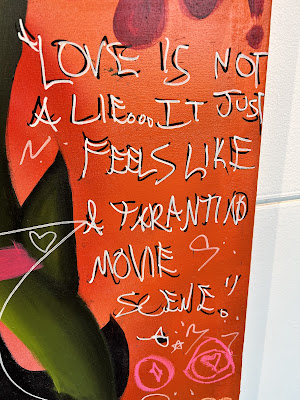 "LOVE IS NOT
A LIE...IT JUST
FEELS LIKE
A TARANTINO
MOVIE
SCENE."